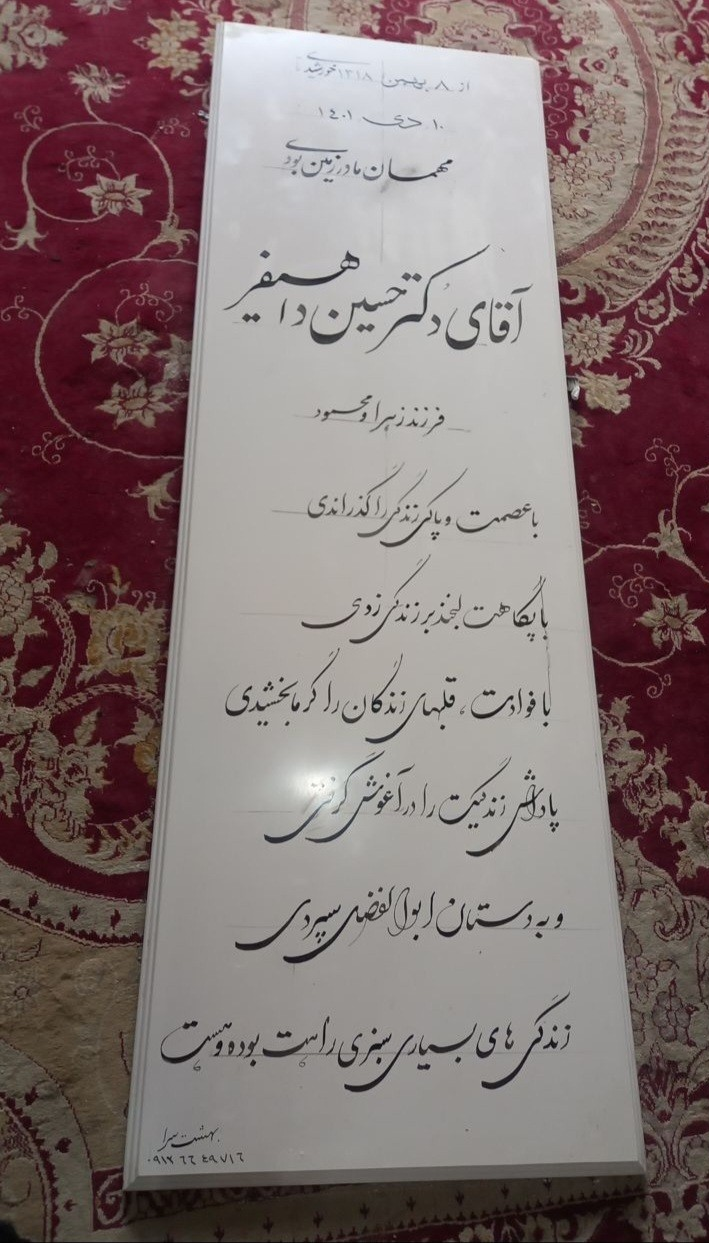 از ۸ بهمن ۱۳۱۸ خورشیدی
۱۰ دی ۱۴۰۱
مهمان مادر زمین بودی
آقای دکتر حسین داهیفر
فرزند زهرا و محمود
با عصمت و پاکی زندگی را گذراندی
با نگاهت لبخند بر زندگی زدی
با فوادت، قلبهای زندگان را گرما بخشیدی
پاداش زندگیت را در آغوش گرفتی
و به دستان ابوالفضل سپردی
زندگی های بسیاری سبزی راهت بوده و هست
بهشت سرا
۰۹۱۲ ۶۶ ۴۹۷۱۶